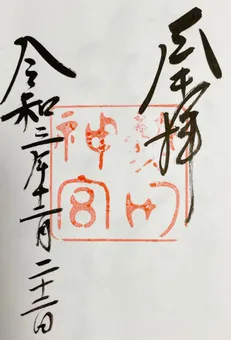 奉拝
神宮
令和三年十一月二十三日